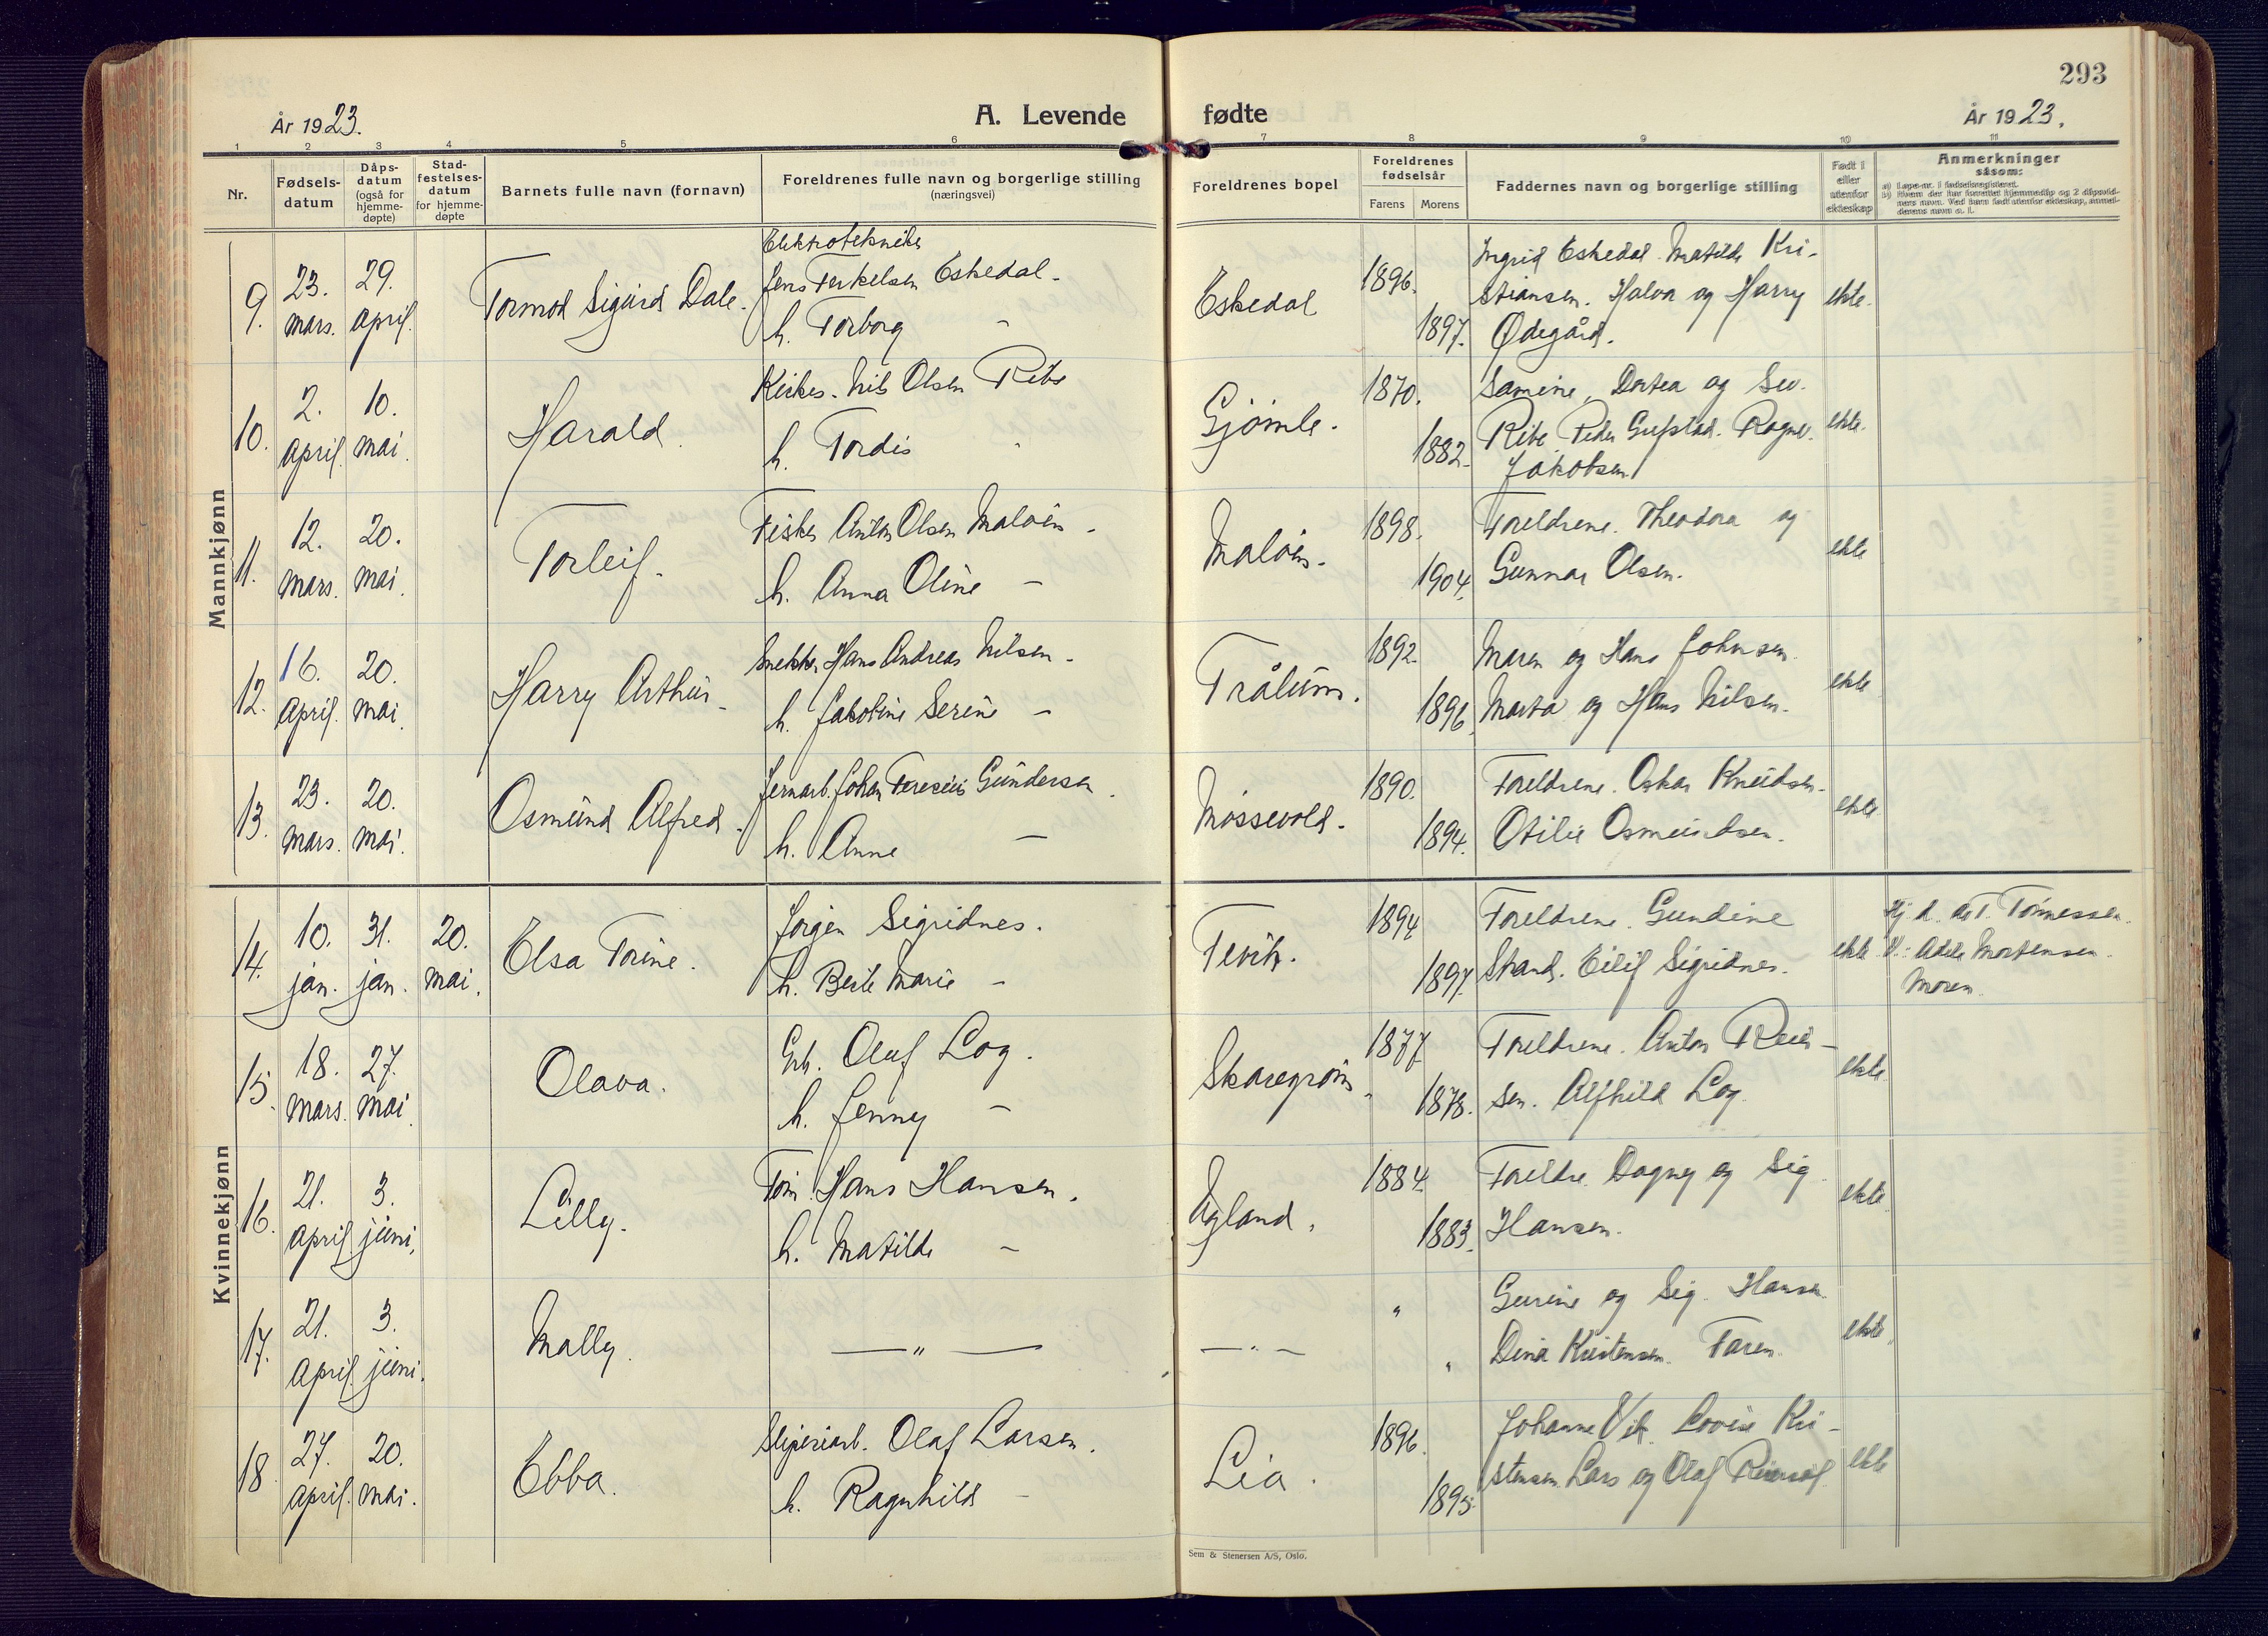 293
År 1923.
A. Levende fødte
År 1923.
1 2 3 4 5 6 7 8 9 10 11
Nr.
Fødsels-
datum
Dåps-
datum
(også for
hjemme-
døpte)
Stad-
festelses-
datum
for hjemme-
døpte
Barnets fulle navn (fornavn)
Foreldrenes fulle navn og borgerlige stilling
(næringsvei)
Foreldrenes bopel
Foreldrenes
fødselsår
Farens Morens
Faddernes navn og borgerlige stilling
Født i
eller
utenfor
ekteskap
Anmerkninger
såsom:
a) Løpe-nr. i fødselsregisteret.
Mannkjønn
9. 23. mars. 29. april. Tormod Sigurd Dale.
Elektrotekniker
Jens Terkelsen Eskedal.
h. Torborg -
Eskedal 1896. 1897.
Ingrid Eskedal. Matilde Kri-
stiansen. Halva og Harry
Ødegård.
ekte.
10. 2. april. 10. mai. Harald.
Kirkes. Nils Olsen Ribe
h. Tordis "
Gjømle. 1870. 1882.
Samine, Dortea og Sev.
Ribe Peder Gufstad. Ragnv.
Jakobsen
ekte.
11. 12. mars. 20. mai. Torleif.
Fisker Anton Olsen Maløen.
h. Anna Oline -
Maløen. 1898. 1904.
Foreldrene. Theodora og
Gunnar Olsen.
ekte
12. 16. april. 20. mai. Harry Arthur.
Snekker Hans Andreas Nilsen.
h. Jakobine Serine -
Trålum. 1892. 1896.
Maren og Hans Johnsen.
Marta og Hans Nilsen.
ekte
13. 23. mars. 20. mai. Osmund Alfred.
Jernarb. Johan Teresius Gundersen.
h. Anne -
Møssevold. 1890. 1894.
Foreldrene. Oskar Knudsen.
Otilie Osmundsen.
ekte.
Kvinnekjønn
14. 10. jan. 31. jan. 20. mai. Elsa Torine.
Jørgen Sigridnes.
h. Berte Marie -
Tevik. 1894 1897.
Foreldrene. Gundine
Strand. Eilif Sigridnes.
ekte
Hj. d. av T. Tønnessen.
V: Adele Mortensen.
Moren.
15. 18. mars. 27. mai. Olava.
Grb. Olaf Log.
h. Jenny -
Skaregrøm. 1877 1878.
Foreldrene. Anton Reier-
sen. Alfhild Log.
ekte
16. 21. april. 3. juni. Lilly.
Tøm. Hans Hansen.
h. Matilde -
Ugland. 1884. 1883.
Foreldre. Dagny og Sig.
Hansen.
ekte
17. 21. april. 3. juni. Mally.
— " — — " — " "
Gurine og Sig. Hansen
Dina Kristensen. Faren.
ekte
18. 27. april. 20. mai. Ebba.
Sliperiarb. Olaf Larsen.
h. Ragnhild -
Lia. 1896. 1895.
Johanne Vik. Lovise Kri-
stensen. Lars og Olaf
ekte
Sem & Stenersen A/S, Oslo.